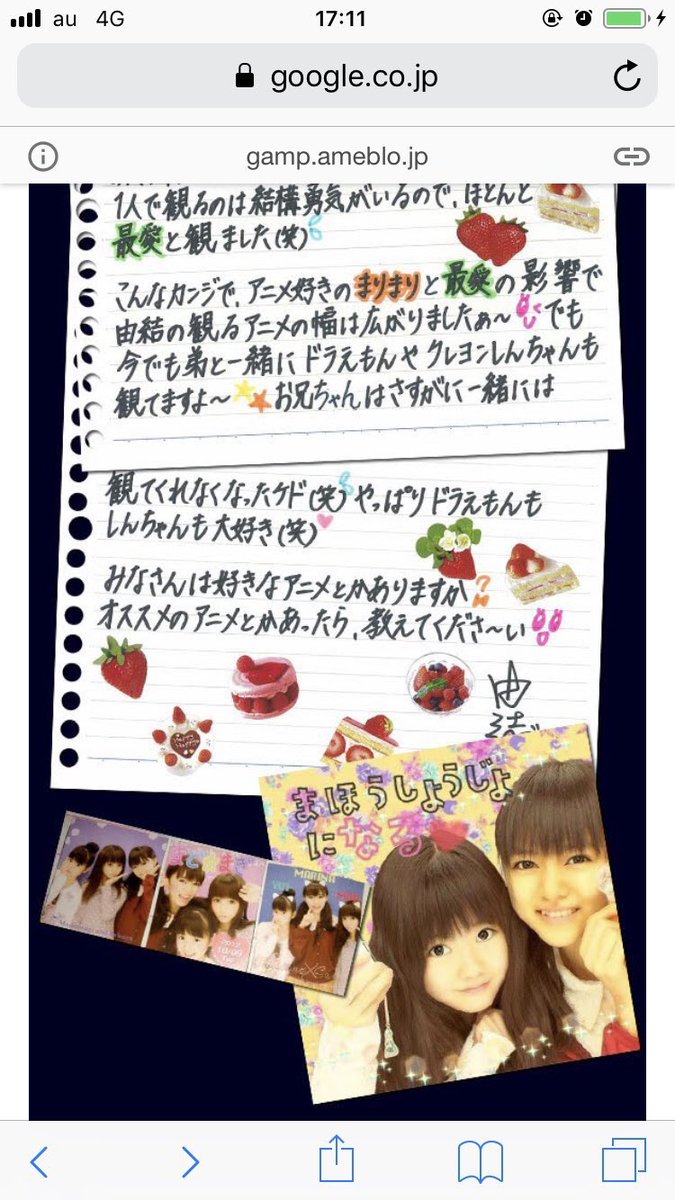 au 4G 17:11
google.co.jp
gamp.ameblo.jp
1人で観るのは結構勇気がいるので、ほとんど
最愛と観ました(笑)
こんなカンジで、アニメ好きのまりまりと最愛の影響で
由結の観るアニメの幅は広がりましたぁ〜でも
今でも弟と一緒にドラえもんやクレヨンしんちゃんも
観てますよ〜お兄ちゃんはさすがに一緒には
観てくれなくなったケド(笑)やっぱりドラえもんも
しんちゃんも大好き(笑)
みなさんは好きなアニメとかありますか?
オススメのアニメとかあったら、教えてくださ〜い!!
由
結
まほうしょうじょ
になる
MARINA
YUI